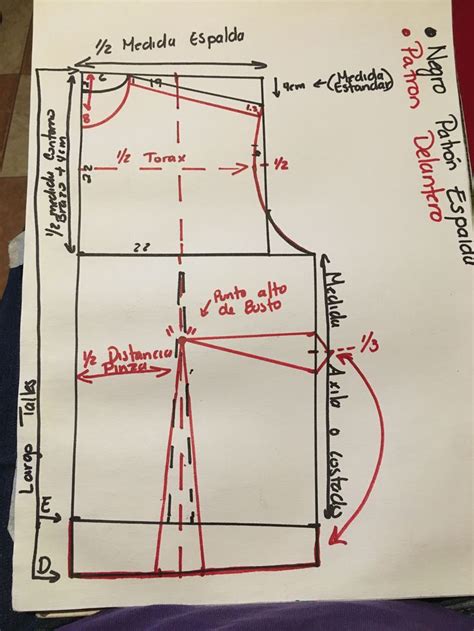 ½ Medida Espalda
6
19
4cm ← (Medida Estandar)
8
1.5
½ medida Contorno
Brazo + 4cm
½ Torax
½
22
Punto alto
de Busto
½ Distancia
Pinza
1/3
Medida Axila o costado
Largo Talles
E
D
• Negro Patrón Espalda
• Patron Delantero